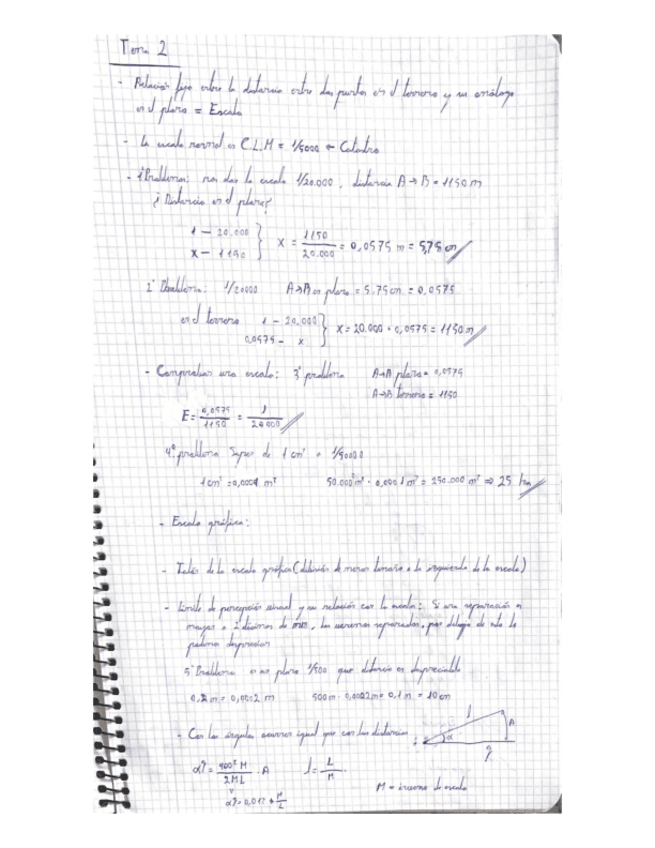 Tema 2
- Relación fijo entre la distancia entre dos puntos en el terreno y su análogo
en el plano = Escala
- La escala normal en C.L.M = 1/5000 ← Catastro
- 1º Problema: nos dan la escala 1/20.000, distancia A→B = 1150 m
¿Distancia en el plano?
1 — 20.000
x — 1150 } x = 1150/20.000 = 0,0575 m = 5,75 cm
2º Problema: 1/20000 A→B en plano = 5,75 cm = 0,0575
en el terreno 1 - 20.000
0,0575 - x } x = 20.000 · 0,0575 = 1150 m
- Comprobar una escala: 3º problema A→B plano = 0,0575
A→B terreno = 1150
E = 0,0575/1150 = 1/20000
4º problema Super de 1 cm² a 1/50000
1 cm² = 0,0001 m² 50.000² m² · 0,0001 m² = 250.000 m² ⇒ 25 ha
- Escala gráfica:
- Talón de la escala gráfica (división de menor tamaño a la izquierda de la escala)
- Límite de percepción visual y su relación con la escala: Si una separación es
mayor a 2 décimas de mm, las veremos separadas, por debajo de esto lo
podemos despreciar
5º Problema en un plano 1/500 que distancia es despreciable
0,2 m = 0,0002 m 500 m · 0,0002 m = 0,1 m = 10 cm
- Con los ángulos ocurre igual que con las distancias
l A α
α = 400ᵍ M / 2ΠL · A l = L/M
M = inverso de escala